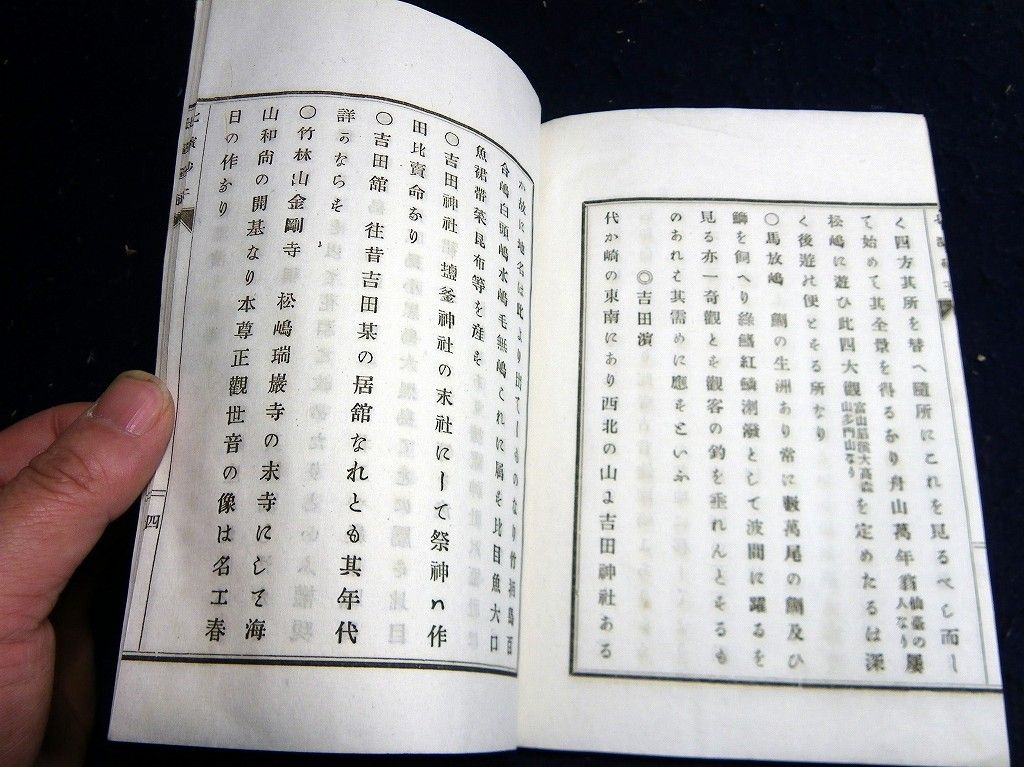 く四方其所を替へ隨所にこれを見るべし而し
て始めて其全景を得るなり舟山萬年翁仙臺の人なり屡
松嶋に遊ひ此四大觀富山扇溪大高森山多門山なりを定めたるは深
く後遊の便とする所なり
○馬放嶋 鯛の生洲あり常に數萬尾の鯛及ひ
鰤を飼へり綠鰭紅鱗潮潑として波間に躍るを
見る亦一奇觀とを觀客の釣を垂れんとそるも
のあれは其需めに應をといふ
◎吉田濱
代か崎の東南にあり西北の山よ吉田神社ある
か故に地名は此より出てしものなり竹
嶋白頭嶋水嶋毛無嶋これに屬を比目魚大口
魚裙帶菜昆布等を産を
○吉田神社 鹽釜神社の末社にして祭神ハ作
田比賣命なり
○吉田舘 往昔吉田某の居舘なれとも其年代
詳かならを
○竹林山金剛寺 松嶋瑞巖寺の末寺にして海
山和尙の開基なり本尊正觀世音の像は名工春
日の作なり
四